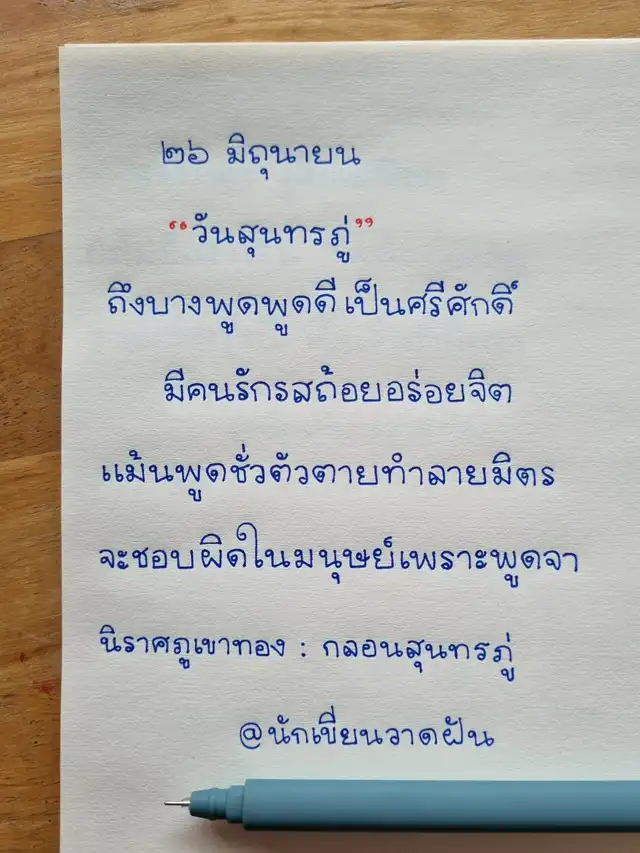 ๒๖ มิถุนายน
“วันสุนทรภู่”
ถึงบางพูดพูดดีเป็นศรีศักดิ์
มีคนรักรสถ้อยอร่อยจิต
แม้นพูดชั่วตัวตายทำลายมิตร
จะชอบผิดในมนุษย์เพราะพูดจา
นิราศภูเขาทอง : กลอนสุนทรภู่
@นักเขียนวาดฝัน